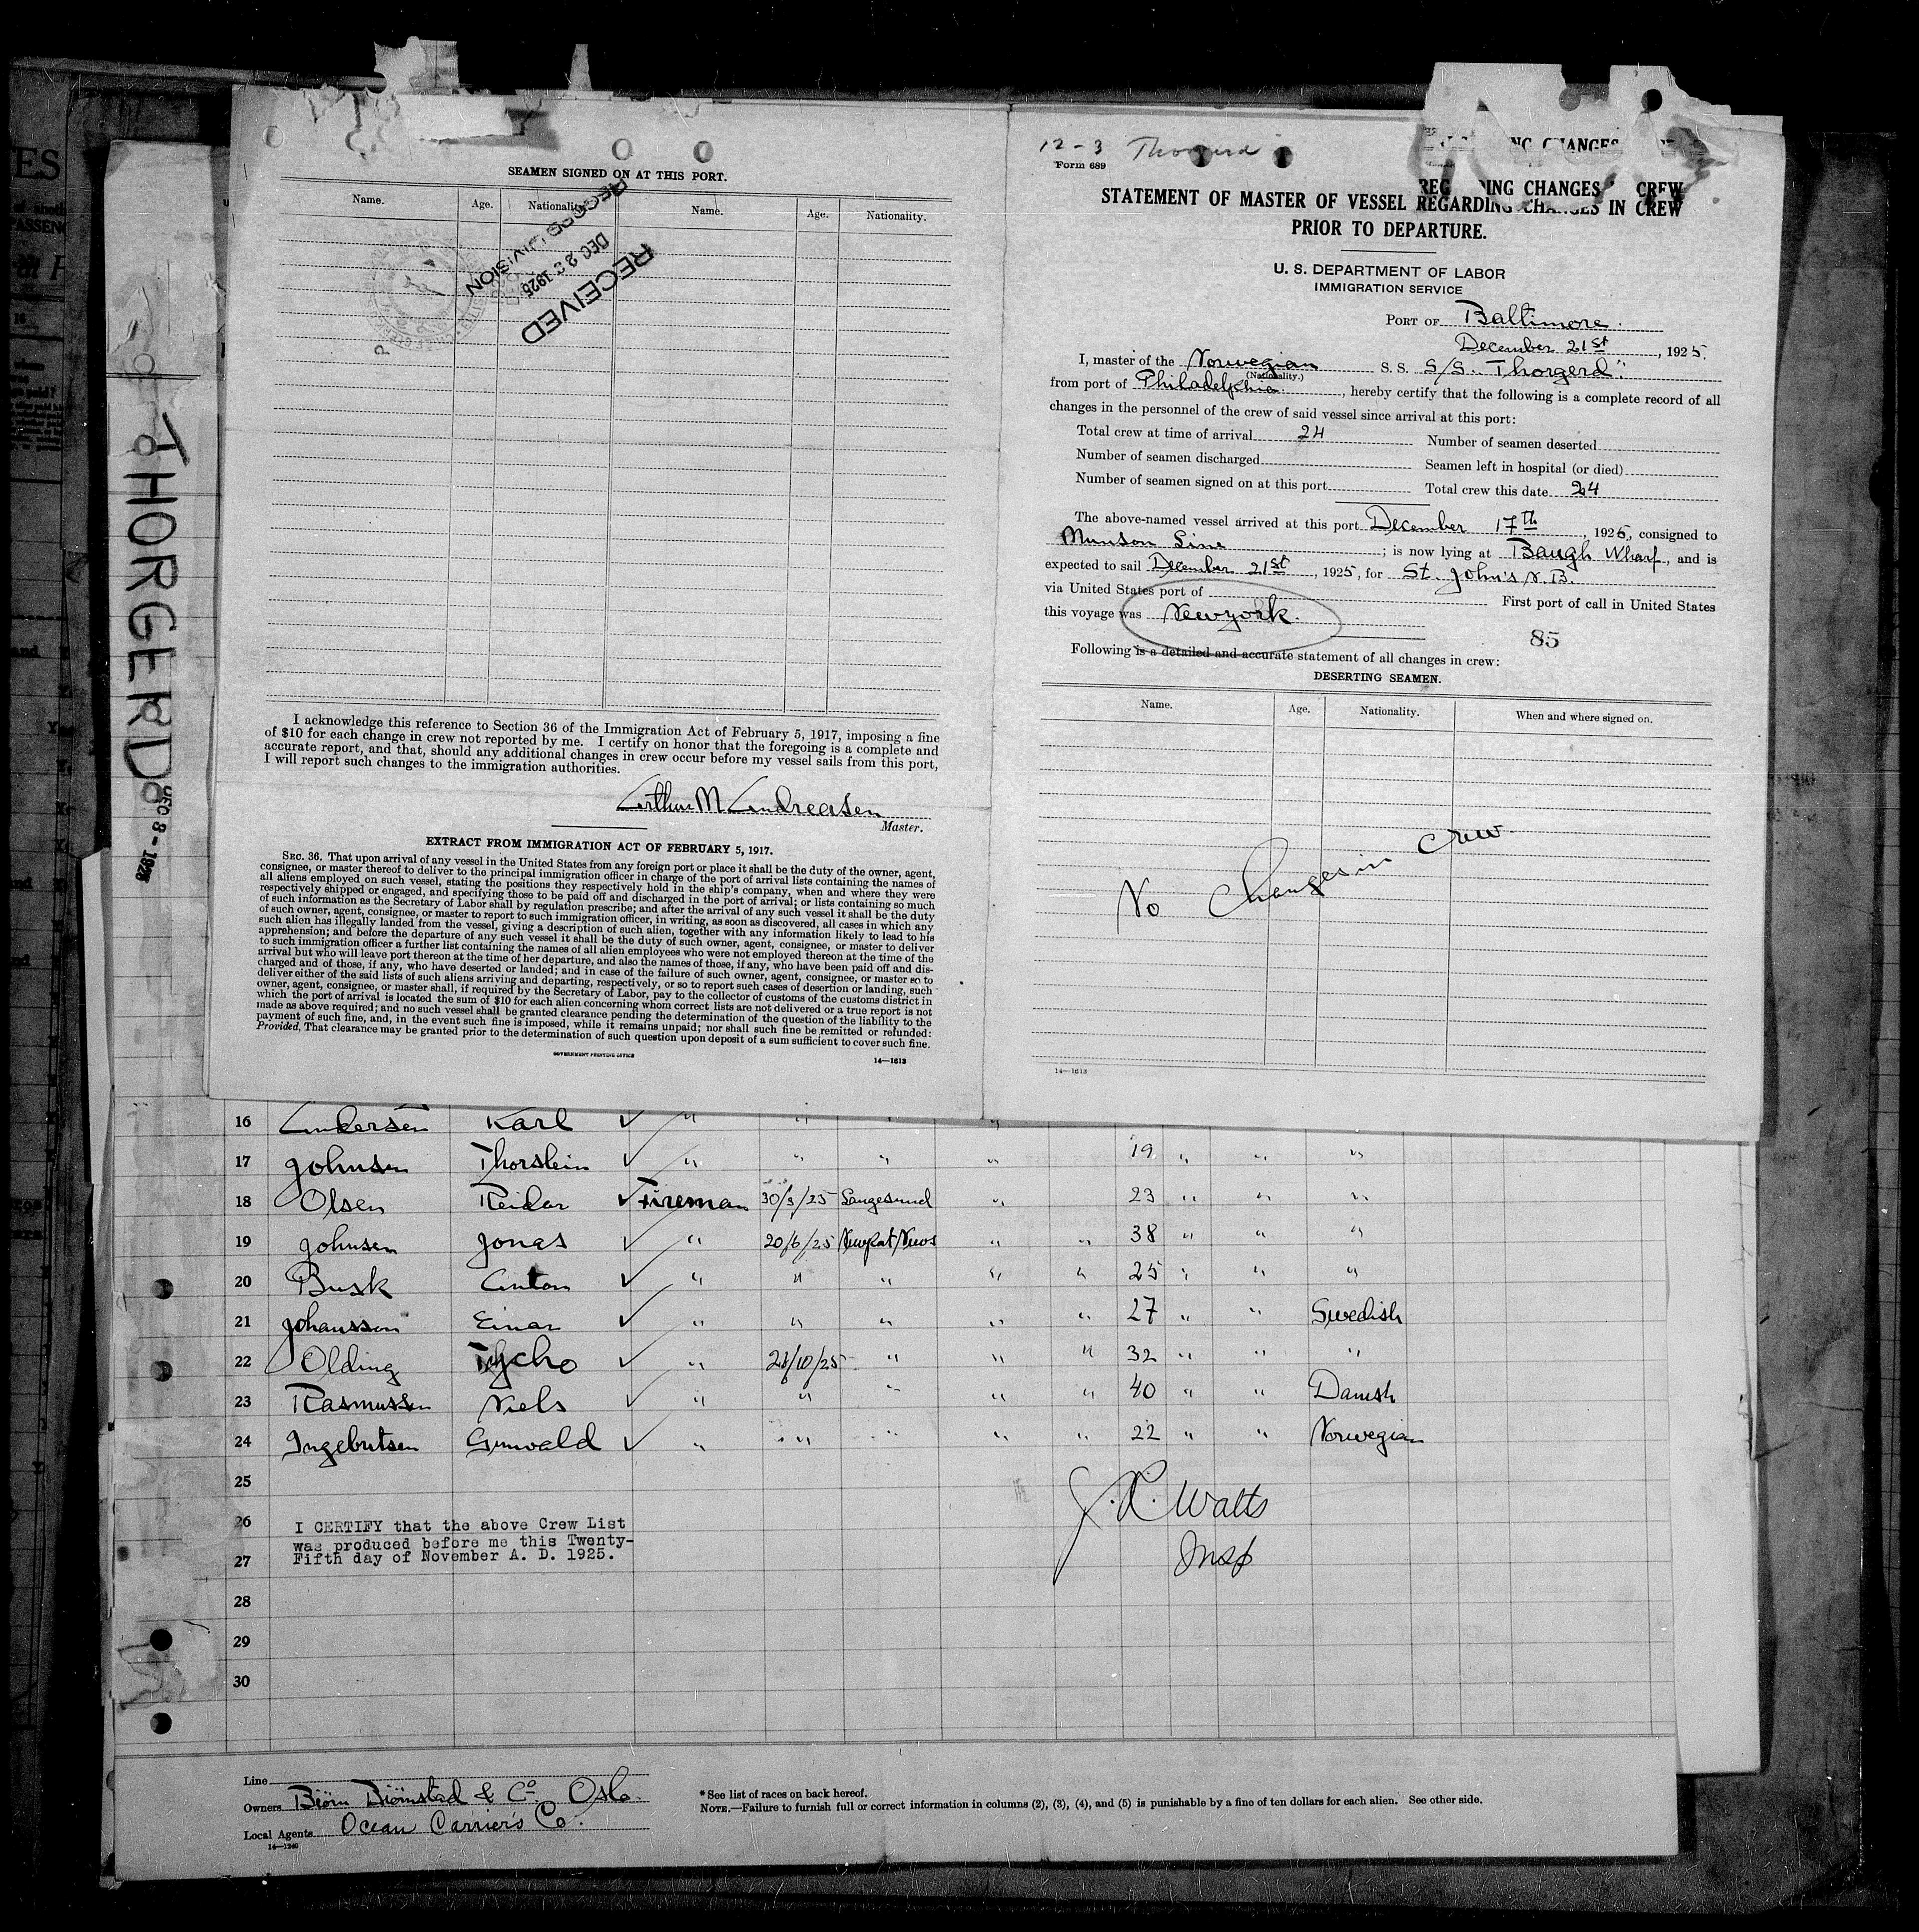 SEAMEN SIGNED ON AT THIS PORT.
Name. Age. Nationality. Name. Age. Nationality.
RECORD DIVISION
DEC 1925
RECEIVED
I acknowledge this reference to Section 36 of the Immigration Act of February 5, 1917, imposing a fine
of $10 for each change in crew not reported by me. I certify on honor that the foregoing is a complete and
accurate report, and that, should any additional changes in crew occur before my vessel sails from this port,
I will report such changes to the immigration authorities.
Arthur M Andreasen
Master.
EXTRACT FROM IMMIGRATION ACT OF FEBRUARY 5, 1917.
SEC. 36. That upon arrival of any vessel in the United States from any foreign port or place it shall be the duty of the owner, agent,
consignee, or master thereof to deliver to the principal immigration officer in charge of the port of arrival lists containing the names of
all aliens employed on such vessel, stating the positions they respectively hold in the ship's company, when and where they were
respectively shipped or engaged, and specifying those to be paid off and discharged in the port of arrival; or lists containing so much
of such information as the Secretary of Labor shall by regulation prescribe; and after the arrival of any such vessel it shall be the duty
of such owner, agent, consignee, or master to report to such immigration officer, in writing, as soon as discovered, all cases in which any
such alien has illegally landed from the vessel, giving a description of such alien, together with any information likely to lead to his
apprehension; and before the departure of any such vessel it shall be the duty of such owner, agent, consignee, or master to deliver
to such immigration officer a further list containing the names of all alien employees who were not employed thereon at the time of the
arrival but who will leave port thereon at the time of her departure, and also the names of those, if any, who have been paid off and dis-
charged and of those, if any, who have deserted or landed; and in case of the failure of such owner, agent, consignee, or master so to
deliver either of the said lists of such aliens arriving and departing, respectively, or so to report such cases of desertion or landing, such
owner, agent, consignee, or master shall, if required by the Secretary of Labor, pay to the collector of customs of the customs district in
which the port of arrival is located the sum of $10 for each alien concerning whom correct lists are not delivered or a true report is not
made as above required; and no such vessel shall be granted clearance pending the determination of the question of the liability to the
payment of such fine, and, in the event such fine is imposed, while it remains unpaid; nor shall such fine be remitted or refunded:
Provided, That clearance may be granted prior to the determination of such question upon deposit of a sum sufficient to cover such fine.
GOVERNMENT PRINTING OFFICE
14—1613
12-3 Thorgerd
Form 689
STATEMENT OF MASTER OF VESSEL REGARDING CHANGES IN CREW
PRIOR TO DEPARTURE.
U. S. DEPARTMENT OF LABOR
IMMIGRATION SERVICE
PORT OF Baltimore.
December 21st, 1925.
I, master of the Norwegian S. S. S/S. Thorgerd
(Nationality.)
from port of Philadelphia, hereby certify that the following is a complete record of all
changes in the personnel of the crew of said vessel since arrival at this port:
Total crew at time of arrival 24 Number of seamen deserted
Number of seamen discharged Seamen left in hospital (or died)
Number of seamen signed on at this port Total crew this date 24
The above-named vessel arrived at this port December 17th, 1925, consigned to
Munson Line; is now lying at Baugh Wharf, and is
expected to sail December 21st, 1925, for St. John's N.B.
via United States port of First port of call in United States
this voyage was Newyork.
85
Following is a detailed and accurate statement of all changes in crew:
DESERTING SEAMEN.
Name. Age. Nationality. When and where signed on.
No Changes in Crew
14—1613
THORGERD
DEC 8 - 1925
16 Andersen Karl ✓ " " " "
17 Johnsen Thorstein ✓ " " " " 19 " " "
18 Olsen Reidar ✓ Fireman 30/3/25 Langesund " 23 " " "
19 Johnsen Jonas ✓ " 20/6/25 Newport News " " 38 " " "
20 Busk Anton ✓ " " " " " 25 " " "
21 Johansson Einar ✓ " " " " " 27 " " Swedish
22 Olding Tycho ✓ " 21/10/25 " " " 32 " " "
23 Rasmussen Niels ✓ " " " " " 40 " " Danish
24 Ingebritsen Gunvald ✓ " " " " " 22 " " Norwegian
25
26
27
28
29
30
I CERTIFY that the above Crew List
was produced before me this Twenty-
Fifth day of November A. D. 1925.
J. R. Watts
Insp
Line
Owners Biörn Biörnstad & Co. Oslo.
Local Agents Ocean Carrier's Co.
14—1240
*See list of races on back hereof.
NOTE.—Failure to furnish full or correct information in columns (2), (3), (4), and (5) is punishable by a fine of ten dollars for each alien. See other side.